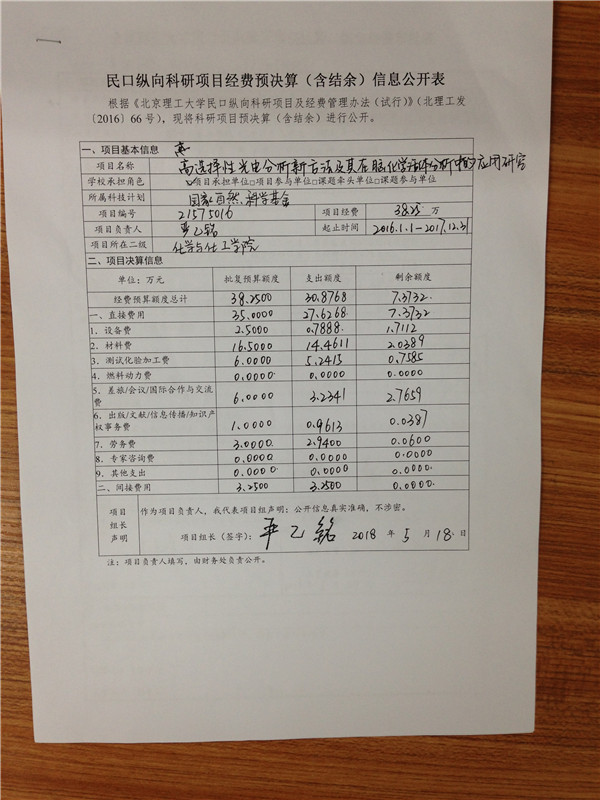 民口纵向科研项目经费预决算（含结余）信息公开表
根据《北京理工大学民口纵向科研项目及经费管理办法（试行）》（北理工发
〔2016〕66号），现将科研项目预决算（含结余）进行公开。
一、项目基本信息
项目名称 高选择性光电分析新方法及其在脑化学活体分析中的应用研究
学校承担角色 □项目承担单位□项目参与单位□课题牵头单位□课题参与单位
所属科技计划 国家自然科学基金
项目编号 21575016 项目经费 38.25 万
项目负责人 乙铭 起止时间 2016.1.1-2017.12.31
项目所在二级 化学与化工学院
二、项目决算信息
单位：万元 批复预算额度 支出额度 剩余额度
经费预算额度总计 38.2500 30.8768 7.3732
一、直接费用 35.0000 27.6268 7.3732
1．设备费 2.5000 0.7888 1.7112
2．材料费 16.5000 14.4611 2.0389
3．测试化验加工费 6.0000 5.2415 0.7585
4．燃料动力费 0.0000 0.0000 0.0000
5．差旅/会议/国际合作与交流
费 6.0000 3.2341 2.7659
6．出版/文献/信息传播/知识产
权事务费 1.0000 0.9613 0.0387
7．劳务费 3.0000 2.9400 0.0600
8．专家咨询费 0.0000 0.0000 0.0000
9．其他支出 0.0000 0.0000 0.0000
二、间接费用 3.2500 3.2500 0.0000
项目
组长
声明
作为项目负责人，我代表项目组声明：公开信息真实准确，不涉密。
项目组长（签字）： 乙铭 2018 年 5 月 18 日
注：项目负责人填写，由财务处负责公开。